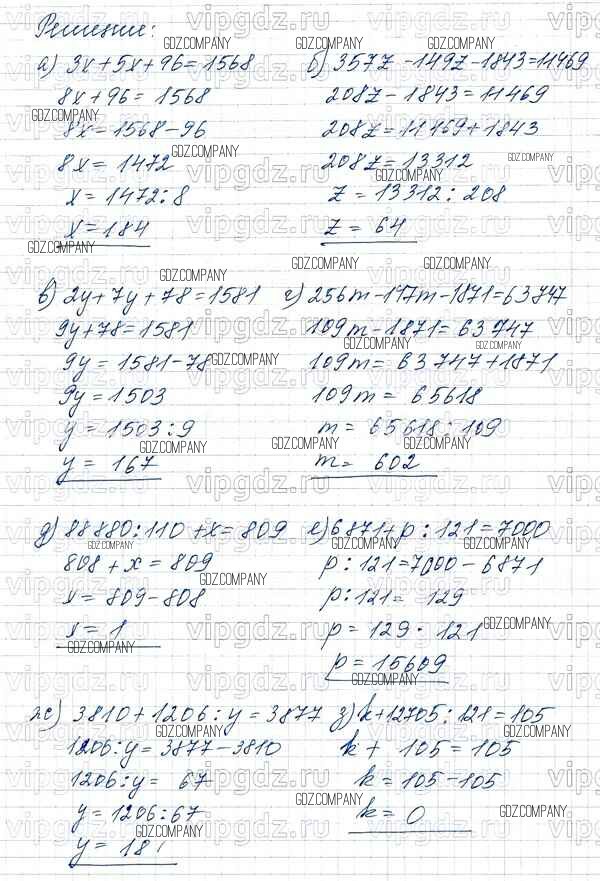 Решение:
а) 3x+5x+96=1568
8x+96=1568
8x=1568-96
8x=1472
x=1472:8
x=184
б) 357z-149z-1843=11469
208z-1843=11469
208z=11469+1843
208z=13312
z=13312:208
z=64
в) 2y+7y+78=1581
9y+78=1581
9y=1581-78
9y=1503
y=1503:9
y=167
г) 256m-147m-1871=63747
109m-1871=63747
109m=63747+1871
109m=65618
m=65618:109
m=602
д) 88880:110+x=809
808+x=809
x=809-808
x=1
е) 6871+p:121=7000
p:121=7000-6871
p:121=129
p=129·121
p=15609
ж) 3810+1206:y=3877
1206:y=3877-3810
1206:y=67
y=1206:67
y=18
з) k+12705:121=105
k+105=105
k=105-105
k=0
vipgdz.ru
GDZ.COMPANY